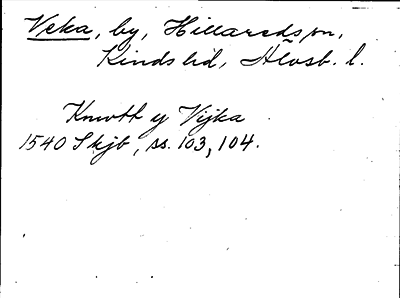 Veka, by, Hillareds sn,
Kinds hd, Älvsb. l.
Knwtt y Vijka
1540 Skjb, ss. 103, 104.